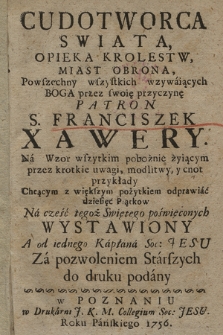 CUDOTWORCA
SWIATA,
OPIEKA KROLESTW,
MIAST OBRONA,
Powszechny wszystkich wzywáiących
BOGA przez swoię przyczynę
PATRON
S. FRANCISZEK
XAWERY.
Ná Wzor wszytkim pobożnię żyiącym
przez krotkie uwagi, modlitwy, y cnot
przykłady
Chcącym z większym pożytkiem odprawiáć
dziesięć Piątkow
Ná cześć tegoż Swiętego poświęconych
WYSTAWIONY
A od iednego Kápłaná Soc: JESU
Zá pozwoleniem Stárszych
do druku podány
W POZNANIU
w Drukárni J. K. M. Collegium Soc: JESU.
Roku Páńskiego 1756.